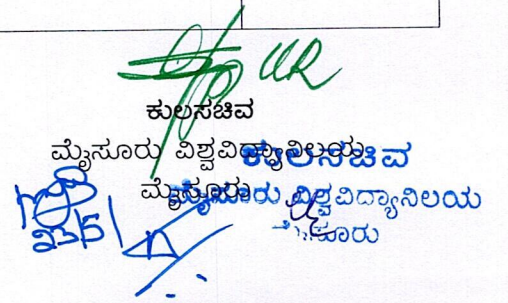 ಕುಲಸಚಿವ
ಮೈಸೂರು ವಿಶ್ವವಿದ್ಯಾನಿಲಯ
ಮೈಸೂರು
ಕುಲಸಚಿವ
ಮೈಸೂರು ವಿಶ್ವವಿದ್ಯಾನಿಲಯ
ಮೈಸೂರು
23/5